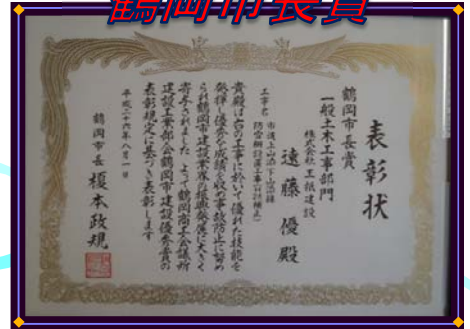 鶴岡市長賞
表彰状
鶴岡市長賞
一般土木工事部門
株式会社 王祇建設
遠藤 優 殿
工事名
防雪柵設置工事
貴殿は右の工事に於いて優れた技能を
発揮し優秀な成績を収め事故防止に努め
られ鶴岡市建設業界の振興発展に大きく
寄与されました よって鶴岡商工会議所
建設工業部会鶴岡市建設優秀賞の
表彰規定に基づき表彰します
平成二十六年八月一日
鶴岡市長 榎本政規